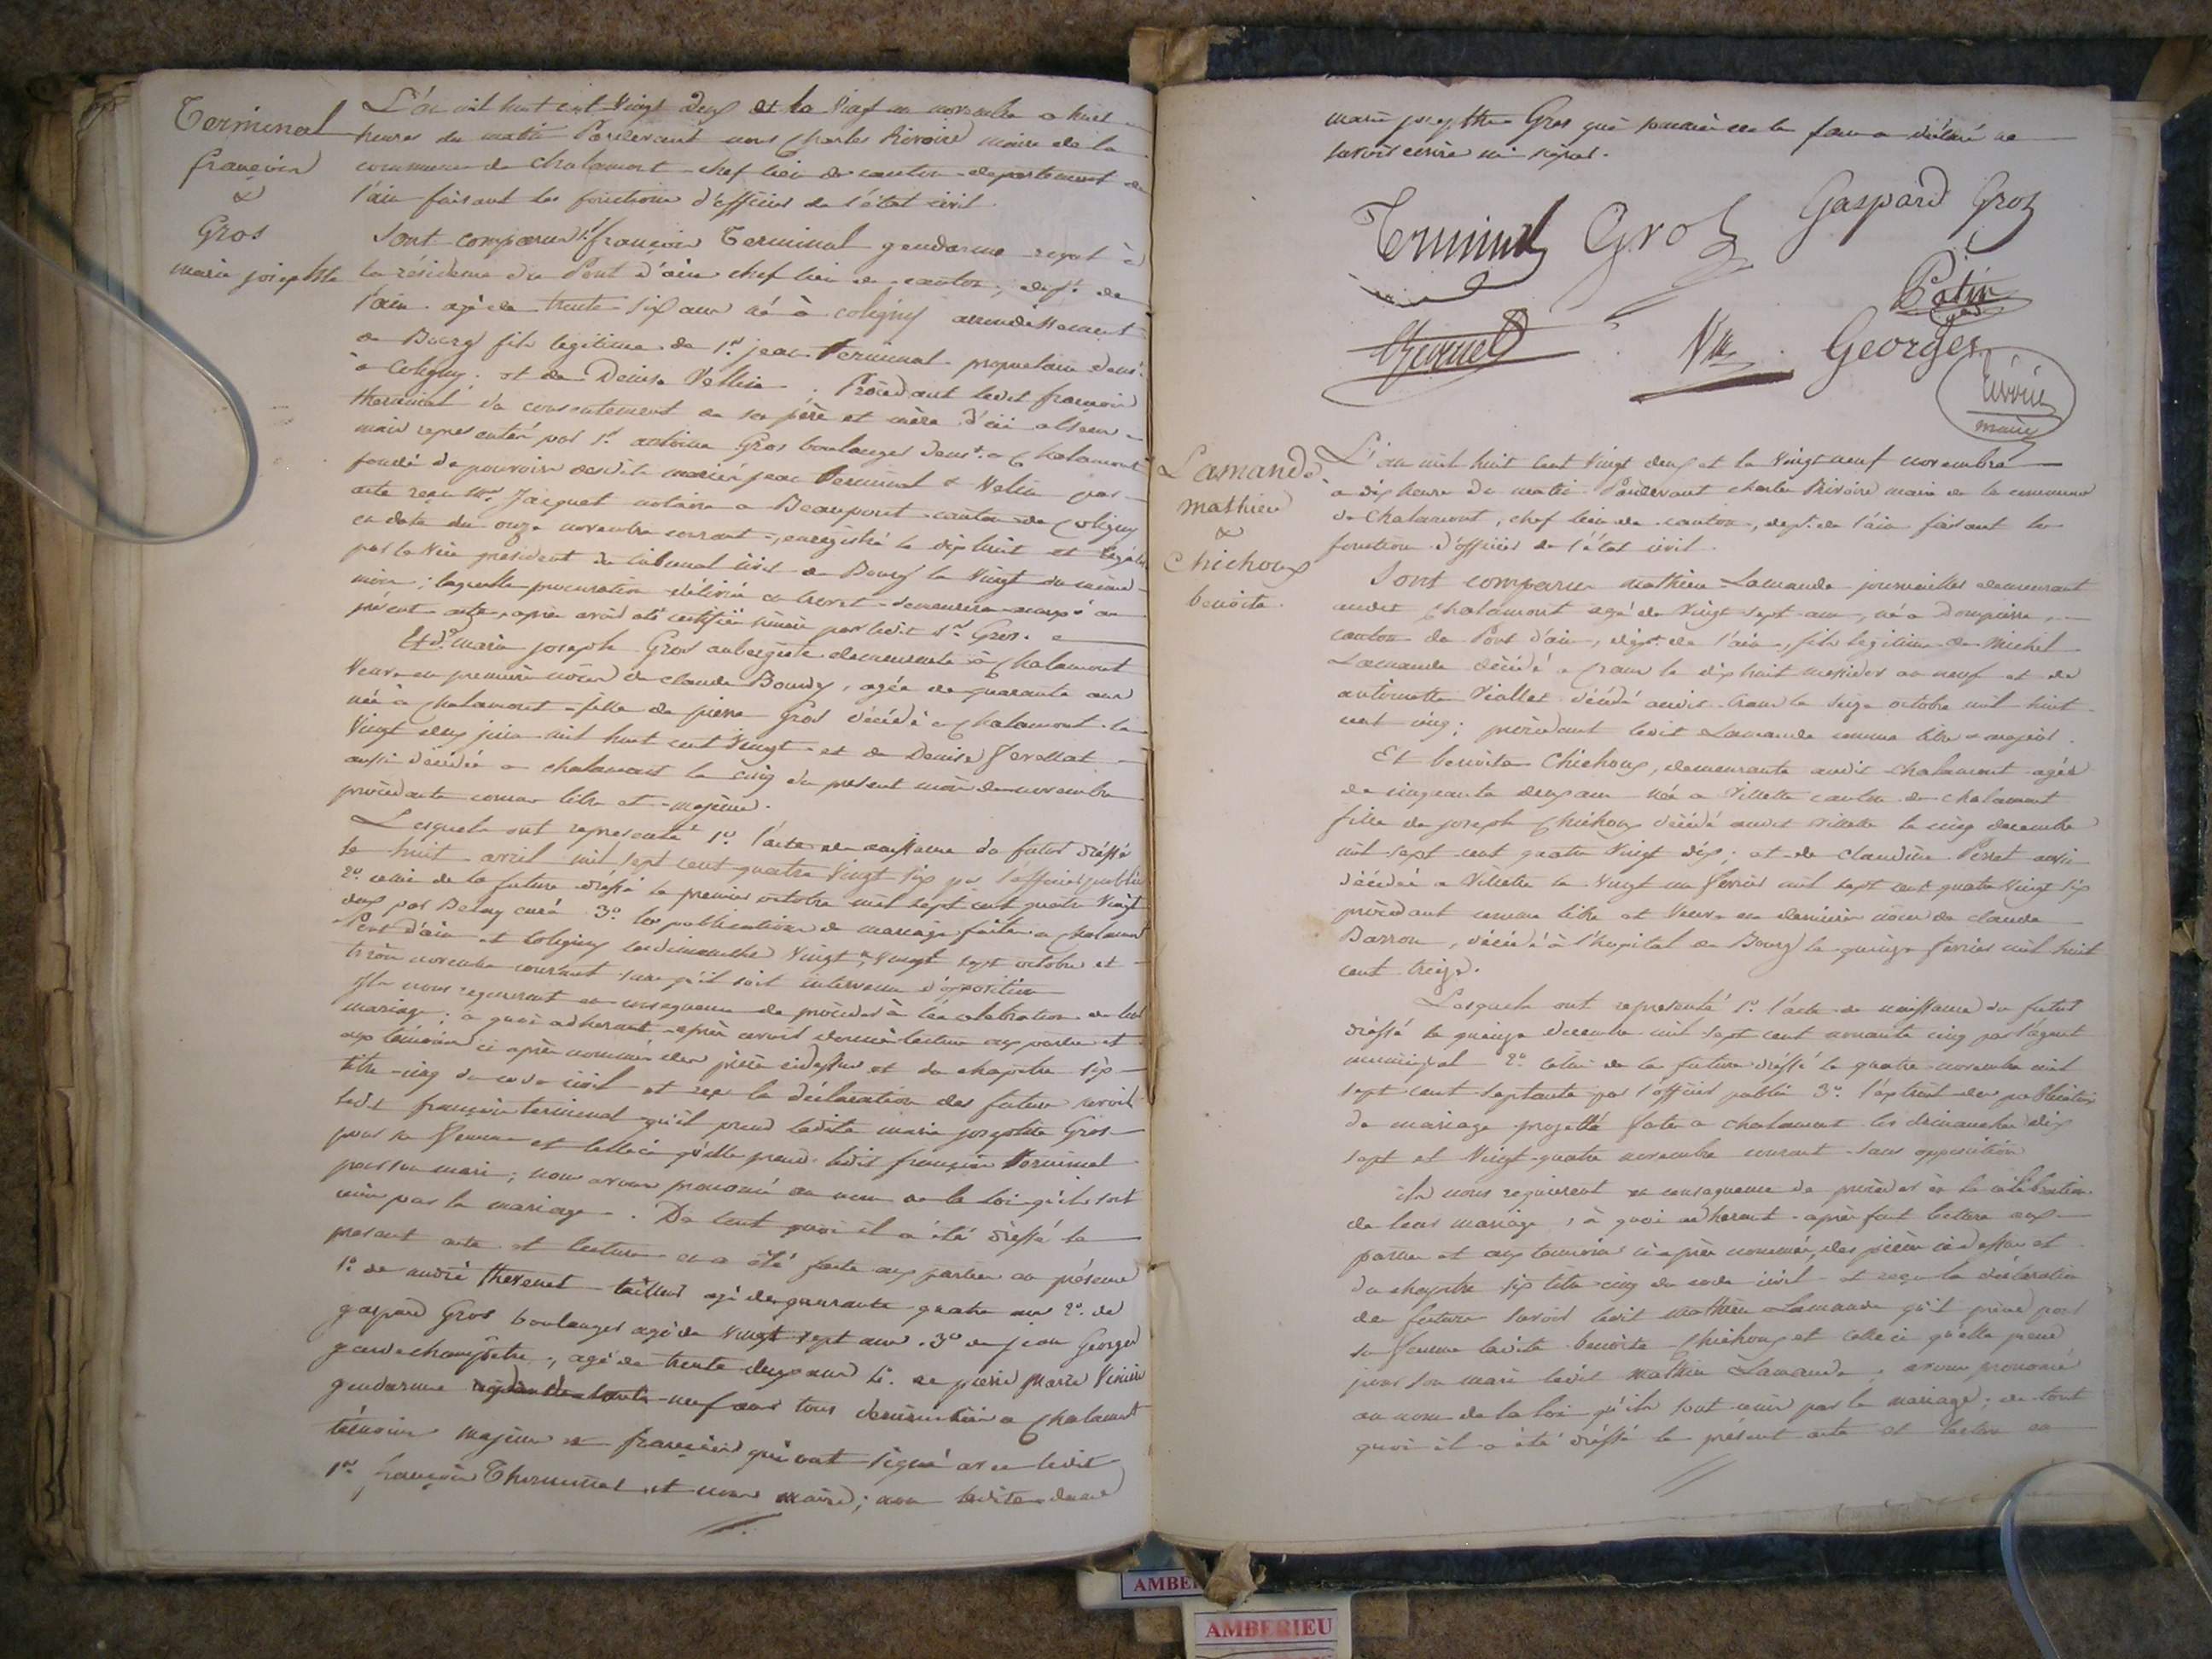 Terminal
françois
&
Gros
marie josephte
L'an mil huit cent vingt deux et le vingt un novembre a huit
heures du matin Pardevant nous Charles Rivoire maire de la
commune de chalamont chef lieu de canton departement de
l'ain faisant les fonctions d'officier de l'état civil
Sont comparus 1º françois Terminal gendarme royal à
la résidence du Pont d'ain chef lieu de canton, dept. de
l'ain agé de trente six ans né à coligny arrondissement
de Bourg fils legitime de Sr. jean Terminal proprietaire demt.
à Coligny. et de Denise Vellin. Procédant ledit françois
therminal du consentement de ses père et mère d'ici absens
mais representés par Sr. antoine Gros boulanger demt. a Chalamont
fondé de pouvoir desdits mariés jean Terminal & Velin par
acte reçu Me. Jacquet notaire a Beaupont canton de Coligny
en date du onze novembre courant, enregistré le dix huit et légalisé
par le Vice président du tribunal civil de Bourg le vingt du même
mois; laquelle procuration délivrée en brevet demeurera annexé au
présent acte, après avoir été certifiée sincère par ledit Sr. Gros.
Et 2º. marie josephte Gros aubergiste demeurante à Chalamont
Veuve en première nôces de claude Boudy, agée de quarante ans
née à Chalamont fille de pierre Gros décédé a Chalamont le
Vingt deux juin mil huit cent vingt et de Denise
aussi décédée a chalamont le cinq du present mois de novembre
procédante comme libre et majeure.
Lesquels ont representé 1º. l'acte de naissance du futur dréssé
le huit avril mil sept cent quatre vingt six par l'officier public
2º. celui de la future dréssé le premier octobre mil sept cent quatre vingt
deux par curé 3º. les publications de mariage faites a Chalamont
Pont d'ain et Coligny les dimanches Vingt, Vingt sept octobre et
trois novembre courant sans qu'il soit intervenu d'opposition
Ils nous requerent en consequence de procéder à la célébration de leur
mariage; à quoi adherant après avoir donné lecture aux parties et
aux témoins ci après nommés des pièces cidessus et du chapitre six
titre cinq du code civil et reçu la déclaration des futurs savoir
ledit françois terminal qu'il prend ladite marie josephte Gros
pour sa femme et celleci qu'elle prend ledit françois Terminal
pour son mari; nous avons prononcé au nom de la loi qu'ils sont
unis par le mariage. De tout quoi il a été dréssé le
present acte et lecture en a été faite aux parties en présence
1º. de andré thevenet tailleur agé de quarante quatre ans 2º. de
gaspard Gros boulanger agé de vingt sept ans. 3º de jean Georges
garde champêtre, agé de trente deux ans 4º. de pierre marie
gendarme neuf ans tous demeurants a Chalamont
témoins majeurs et français qui ont signé avec ledit
Sr. françois Therminal et nous maire; non ladite dame
marie josephte Gros qui sommée de le faire a déclaré ne
savoir écrire ni signer.
Terminal Gros Gaspard Gros
Patin
thevenet Georges
Rivoire
maire
Lamande
mathieu
&
Chichoux
benoite.
L'an mil huit cent vingt deux et le vingt neuf novembre
a dix heures du matin Pardevant charles Rivoire maire de la commune
de Chalamont, chef lieu de canton, dept. de l'ain faisant les
fonctions d'officier de l'état civil.
Sont comparus mathieu Lamande journaillier demeurant
audit Chalamont agé de vingt sept ans, né a Dompierre,
canton de Pont d'ain, dept. de l'ain, fils légitime de Michel
Lamande décédé a Crans le dix huit messidor an neuf et de
antoinette Viallet décédée audit Crans le seize octobre mil huit
cent cinq; procédant ledit Lamande comme libre & majeur.
Et benoite Chichoux, demeurante audit chalamont agée
de cinquante deux ans née a Villette canton de chalamont
fille de joseph Chichoux décédé audit villette le cinq décembre
mil sept cent quatre vingt dix; et de claudine Perret aussi
décédée a Villette le vingt un février mil sept cent quatre vingt six
procédant comme libre et Veuve en dernière nôces de claude
Barron, décédé à l'hopital de Bourg le quinze février mil huit
cent treize.
Lesquels ont representé 1º. l'acte de naissance du futur
dréssé le quinze décembre mil sept cent nonante cinq par l'agent
municipal 2º. celui de la future dréssé le quatre novembre mil
sept cent septante par l'officier public 3º. l'extrait des publications
de mariage projetté faites a chalamont les dimanches dix
sept et vingt quatre novembre courant sans opposition
ils nous requierent en consequence de procéder à la célébration
de leur mariage, à quoi adherant après fait lecture aux
parties et aux temoins ci après nommés, des pièces cidessus et
du chapitre six titre cinq du code civil et reçu la déclaration
des futurs savoir ledit mathieu Lamande qu'il prend pour
sa femme ladite benoite Chichoux et celle ci qu'elle prend
pour son mari ledit mathieu Lamande, avons prononcé
au nom de la loi qu'ils sont unis par le mariage; de tout
quoi il a été dréssé le présent acte et lecture en
AMBE
AMBERIEU